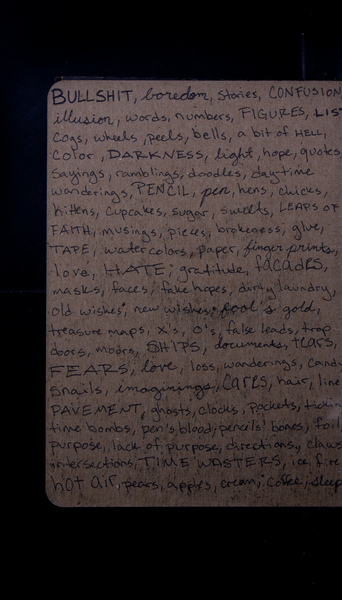 BULLSHIT, boredom, stories, CONFUSION
illusion, words, numbers, FIGURES, LIST
Cogs, wheels, peels, bells, a bit of HELL,
Color, DARKNESS, light, hope, quotes,
Sayings, ramblings, doodles, daytime
wanderings, PENCIL, pen, hens, chicks,
kittens, cupcakes, sugar, sweets, LEAPS OF
FAITH, musings, pieces, brokeness, glue,
TAPE, watercolors, paper, finger prints,
love, HATE, gratitude, facades,
masks, faces, fake hopes, dirty laundry,
old wishes, new wishes, fool's gold,
treasure maps, X's, O's, false leads, trap
doors, moors, SHIPS, documents, tears,
FEARS, love, loss, wanderings, Cand
Snails, imaginings, CARES, hair, line
PAVEMENT, ghosts, clocks, pockets, tickin
time bombs, pen's blood, pencils' bones, foil
purpose, lack of purpose, directions, claws
intersections, TIME WASTERS, ice, fire
hot air, pears, apples, cream, coffee, sleep